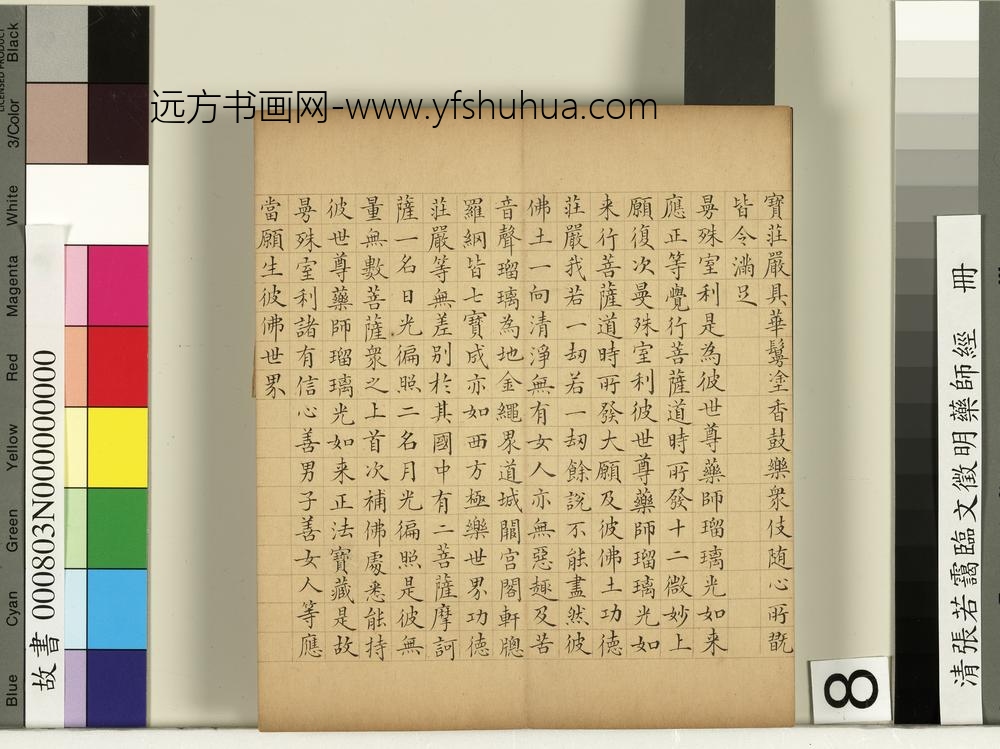 远方书画网-www.yfshuhua.com
寶莊嚴具華鬘塗香鼓樂衆伎随心所翫
皆令滿足
曼殊室利是為彼世尊藥師瑠璃光如来
應正等覺行菩薩道時所發十二微妙上
願復次曼殊室利彼世尊藥師瑠璃光如
来行菩薩道時所發大願及彼佛土功德
莊嚴我若一劫若一劫餘說不能盡然彼
佛土一向清淨無有女人亦無惡趣及苦
音聲瑠璃為地金繩界道城闕宮閣軒牕
羅綱皆七寶成亦如西方極樂世界功德
莊嚴等無差別於其國中有二菩薩摩訶
薩一名日光徧照二名月光徧照是彼無
量無數菩薩衆之上首次補佛處悉能持
彼世尊藥師瑠璃光如来正法寶藏是故
曼殊室利諸有信心善男子善女人等應
當願生彼佛世界
清張若靄臨文徵明藥師經 冊
故書 000803N000000000
8
LICENSED PRODUCT
Black
3/Color
White
Magenta
Red
Yellow
Green
Cyan
Blue